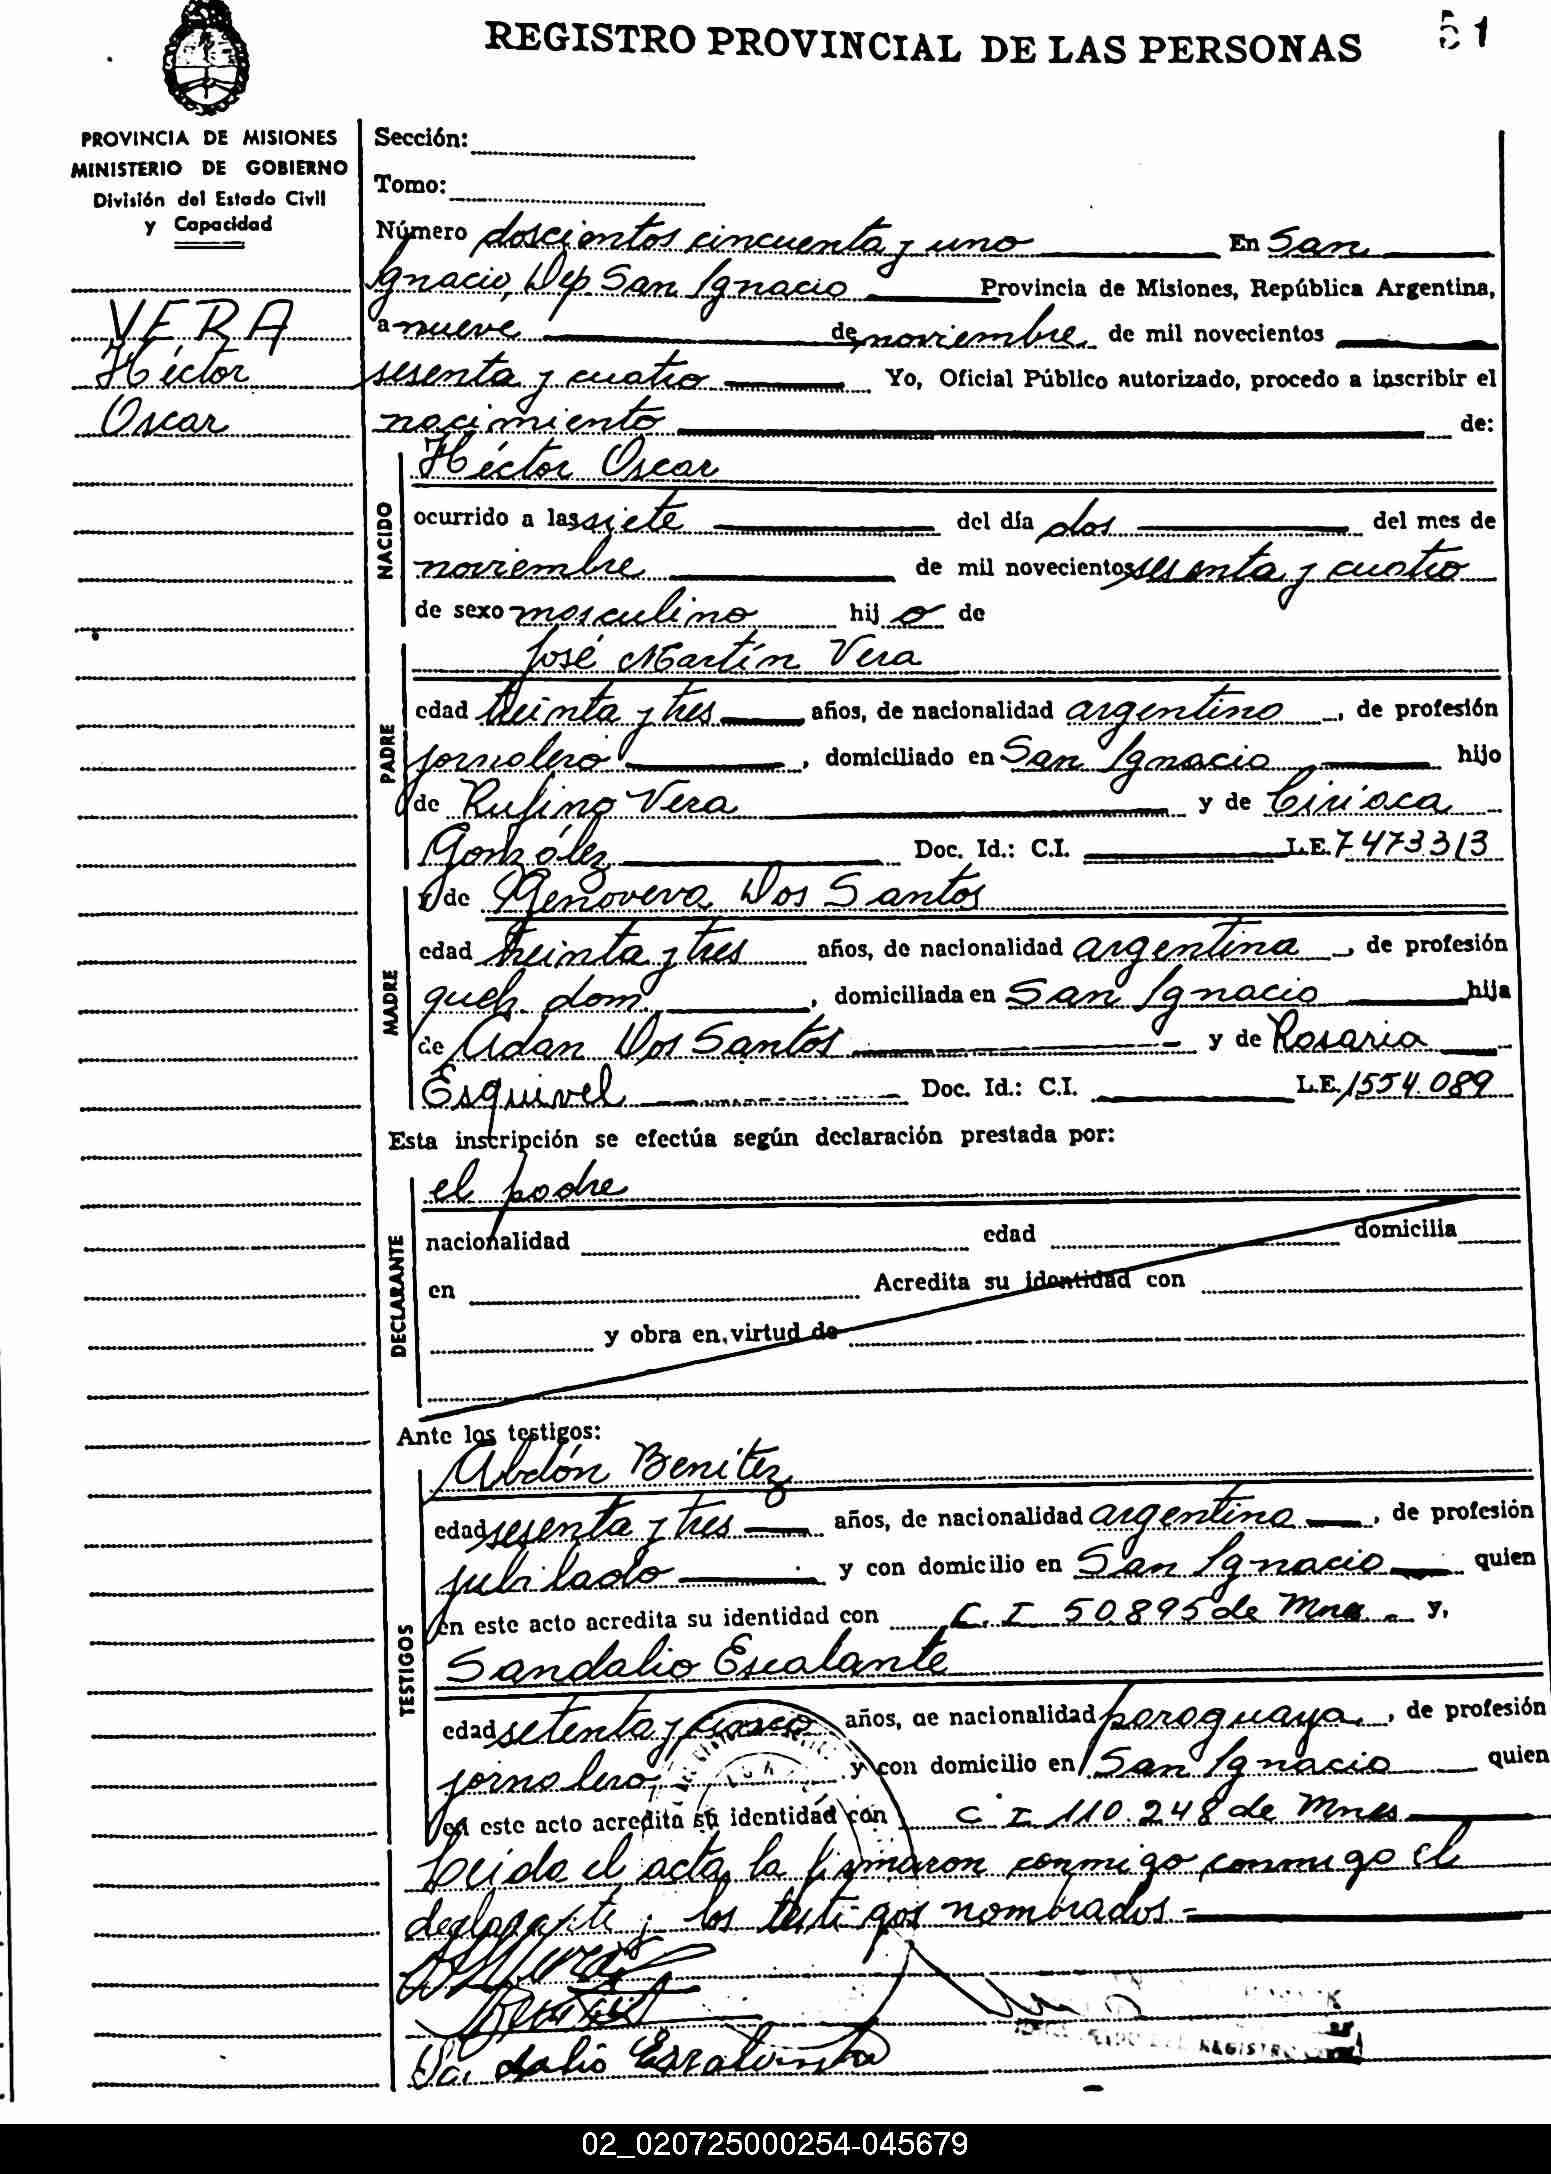 REGISTRO PROVINCIAL DE LAS PERSONAS 51
PROVINCIA DE MISIONES
MINISTERIO DE GOBIERNO
División del Estado Civil
y Capacidad
VERA
Héctor
Oscar
Sección:
Tomo:
Número doscientos cincuenta y uno En San
Ignacio, Dep San Ignacio Provincia de Misiones, República Argentina,
a nueve de noviembre de mil novecientos
sesenta y cuatro Yo, Oficial Público autorizado, procedo a inscribir el
nacimiento de:
NACIDO
Héctor Oscar
ocurrido a las siete del día dos del mes de
noviembre de mil novecientos sesenta y cuatro
de sexo masculino hij o de
PADRE
José Martín Vera
edad treinta y tres años, de nacionalidad argentino, de profesión
jornalero, domiciliado en San Ignacio hijo
de Rufino Vera y de Ciriaca
González Doc. Id.: C.I. L.E. 7473313
MADRE
y de Genoveva Dos Santos
edad treinta y tres años, de nacionalidad argentina, de profesión
queh. dom., domiciliada en San Ignacio hija
de Adan Dos Santos y de Rosaria
Esquivel Doc. Id.: C.I. L.E. 1554.089
Esta inscripción se efectúa según declaración prestada por:
DECLARANTE
el padre
nacionalidad edad domicilia
en Acredita su identidad con
y obra en virtud de
Ante los testigos:
TESTIGOS
Abdón Benítez
edad sesenta y tres años, de nacionalidad argentina, de profesión
jubilado y con domicilio en San Ignacio quien
en este acto acredita su identidad con C. I 50895 de Mnes. y,
Sandalio Escalante
edad setenta y cinco años, de nacionalidad paraguaya, de profesión
jornalero y con domicilio en San Ignacio quien
en este acto acredita su identidad con C. I. 110.248 de Mnes
Leida el acta la firmaron conmigo conmigo el
declarante y los testigos nombrados.=
Sandalio Escalante
REGISTRO
02_020725000254-045679